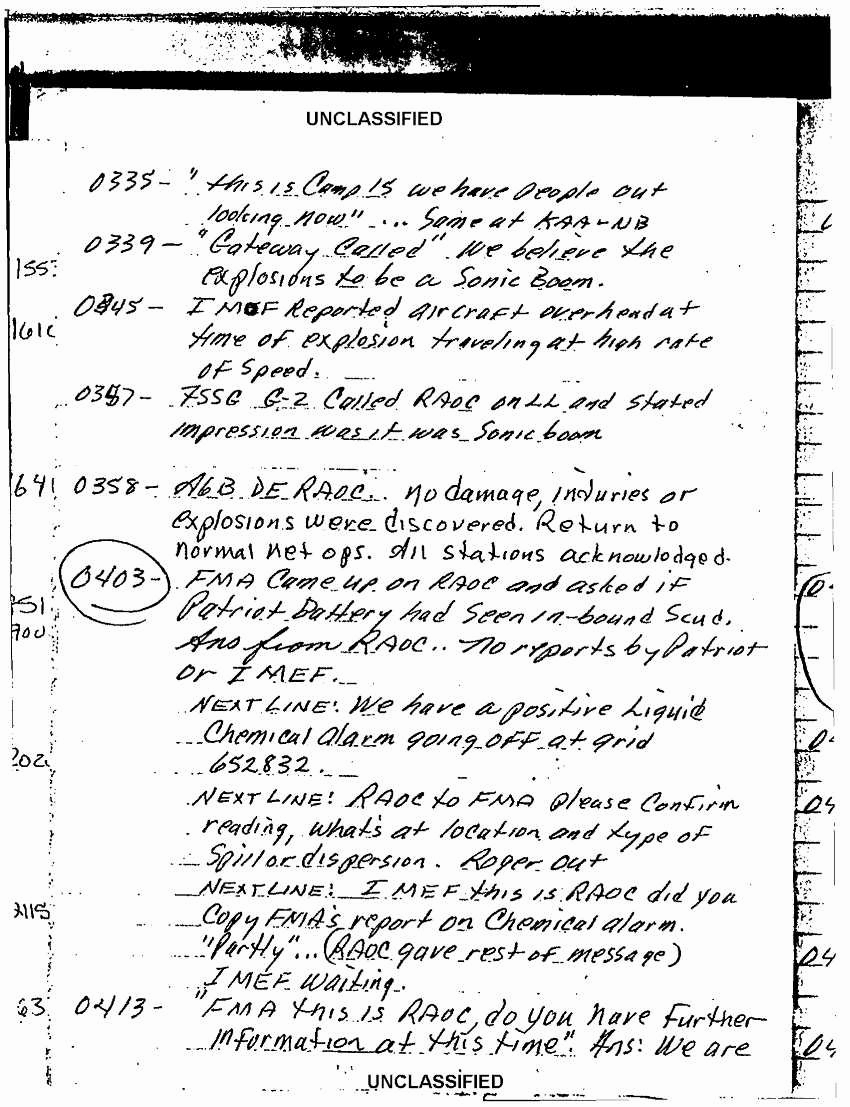 UNCLASSIFIED
0335- "this is Camp 15 we have people out
looking now"... Same at KAA-NB
0339- "Gateway Called" We believe the
explosions to be a Sonic Boom.
155
0345- I MEF Reported aircraft overhead at
time of explosion traveling at high rate
of Speed.
0357- FSSG G-2 Called RAOC on LL and stated
impression was it was Sonic boom
641 0358- A6B DE RAOC.. no damage, injuries or
explosions were discovered. Return to
normal net ops. All stations acknowledged.
0403- FMA Came up on RAOC and asked if
Patriot Battery had Seen in-bound Scud.
Ans from RAOC.. No reports by Patriot
or I MEF.
NEXT LINE: We have a positive Liquid
Chemical alarm going off at grid
652832.
NEXT LINE! RAOC to FMA please Confirm
reading, what's at location and type of
Spill or dispersion. Roger out
NEXT LINE! I MEF this is RAOC did you
2115
Copy FMA's report on Chemical alarm.
"Partly"... (RAOC gave rest of message)
I MEF Waiting.
63 0413- "FMA this is RAOC, do you have further
information at this time". Ans: We are
UNCLASSIFIED